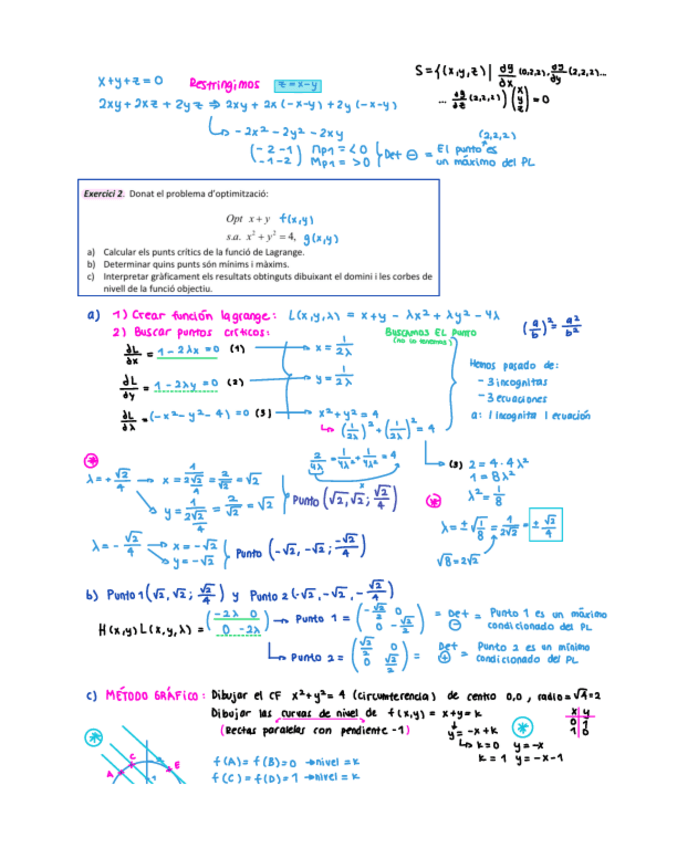 x+y+z=0 Restringimos z=x-y
S={(x,y,z)| ∂g/∂x (0,2,2), ∂g/∂y (2,2,2)...
... ∂g/∂z (2,2,2)) (x y z) = 0
2xy+2xz+2yz ⇒ 2xy+2x(-x-y)+2y(-x-y)
↳ -2x²-2y²-2xy
(-2 -1 / -1 -2) Mp1 = <0 Mp1 = >0 } Det ⊖ = El punto (2,2,2) es un máximo del PL
Exercici 2. Donat el problema d'optimització:
Opt x+y f(x,y)
s.a. x²+y²=4, g(x,y)
a) Calcular els punts crítics de la funció de Lagrange.
b) Determinar quins punts són mínims i màxims.
c) Interpretar gràficament els resultats obtinguts dibuixant el domini i les corbes de
nivell de la funció objectiu.
a) 1) Crear función lagrange: L(x,y,λ) = x+y - λx² + λy² - 4λ
2) Buscar puntos críticos:
BUSCAMOS EL PUNTO
(no lo tenemos)
(a/b)² = a²/b²
∂L/∂x = 1-2λx=0 (1) → x = 1/2λ
∂L/∂y = 1-2λy=0 (2) → y = 1/2λ
∂L/∂λ = (-x²-y²-4)=0 (3) → x²+y²=4
↳ (1/2λ)² + (1/2λ)² = 4
Hemos pasado de:
- 3 incognitas
- 3 ecuaciones
a: 1 incognita 1 ecuación
2/4λ = 1/4λ² + 1/4λ² = 4
(3) 2 = 4·4λ²
1 = 8λ²
λ² = 1/8
λ = ±√(1/8) = 1/2√2 = ±√2/4
√8=2√2
λ = +√2/4 → x = 1/(2√2/4) = 2/√2 = √2
y = 1/(2√2/4) = 2/√2 = √2
Punto (√2, √2; √2/4)
λ = -√2/4 → x = -√2
y = -√2
Punto (-√2, -√2; -√2/4)
b) Punto 1 (√2, √2; √2/4) y Punto 2 (-√2, -√2, -√2/4)
H(x,y)L(x,y,λ) = (-2λ 0 / 0 -2λ) → Punto 1 = (-√2/2 0 / 0 -√2/2) = Det ⊖ = Punto 1 es un máximo condicionado del PL
↳ Punto 2 = (√2/2 0 / 0 √2/2) = Det ⊕ = Punto 2 es un mínimo condicionado del PL
c) MÉTODO GRÁFICO: Dibujar el CF x²+y²=4 (circumferencia) de centro 0,0, radio=√4=2
Dibujar las curvas de nivel de f(x,y) = x+y=k
(Rectas paralelas con pendiente -1)
y = -x+k
↳ k=0 y=-x
k=1 y=-x-1
x y
0 1
1 0
A C E
f(A) = f(B)=0 → nivel = k
f(C) = f(D)=1 → nivel = k